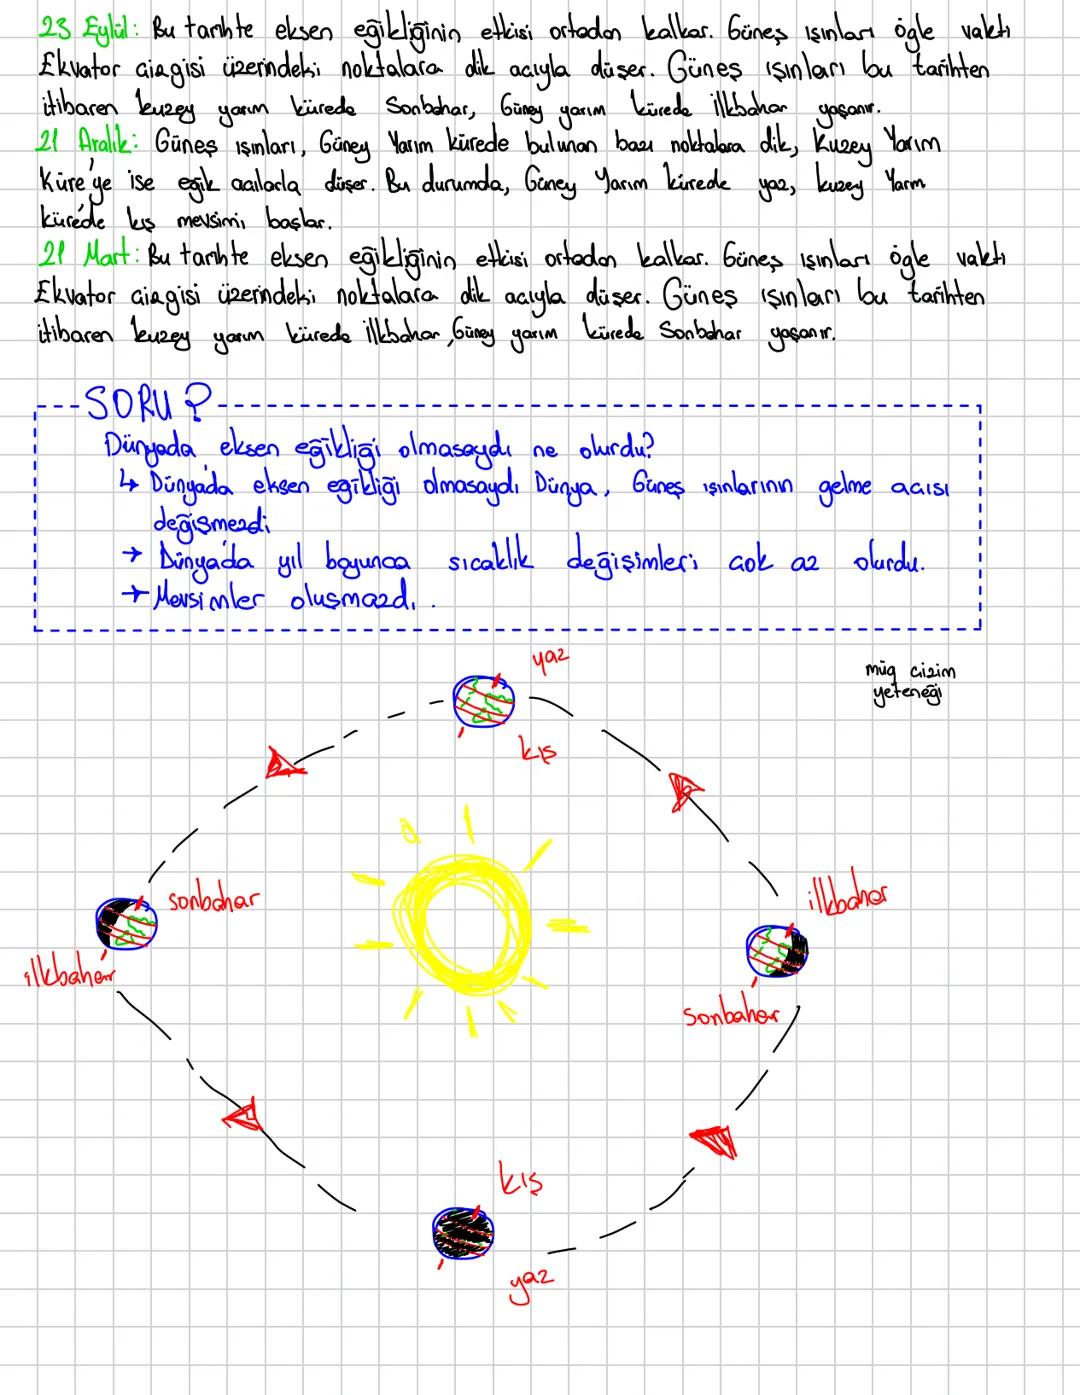 23 Eylül: Bu tarihte eksen eğikliğinin etkisi ortadan kalkar. Güneş ışınları öğle vakti
Ekvator çizgisi üzerindeki noktalara dik açıyla düşer. Güneş ışınları bu tarihten
itibaren kuzey yarım kürede Sonbahar, Güney yarım kürede İlkbahar yaşanır.
21 Aralık: Güneş ışınları, Güney Yarım kürede bulunan bazı noktalara dik, Kuzey Yarım
Küre'ye ise eğik açılarla düşer. Bu durumda, Güney Yarım kürede yaz, kuzey Yarım
kürede kış mevsimi başlar.
21 Mart: Bu tarihte eksen eğikliğinin etkisi ortadan kalkar. Güneş ışınları öğle vakti
Ekvator çizgisi üzerindeki noktalara dik açıyla düşer. Güneş ışınları bu tarihten
itibaren kuzey yarım kürede İlkbahar, Güney yarım kürede Sonbahar yaşanır.
SORU ?
Dünyada eksen eğikliği olmasaydı ne olurdu?
↳ Dünyada eksen eğikliği olmasaydı Dünya, Güneş ışınlarının gelme açısı
değişmezdi
→ Dünya'da yıl boyunca sıcaklık değişimleri çok az olurdu.
→ Mevsimler oluşmazdı.
yaz
müq çizim
yeteneği
kış
sonbahar
ilkbahar
ilkbahar
sonbahar
kış
yaz